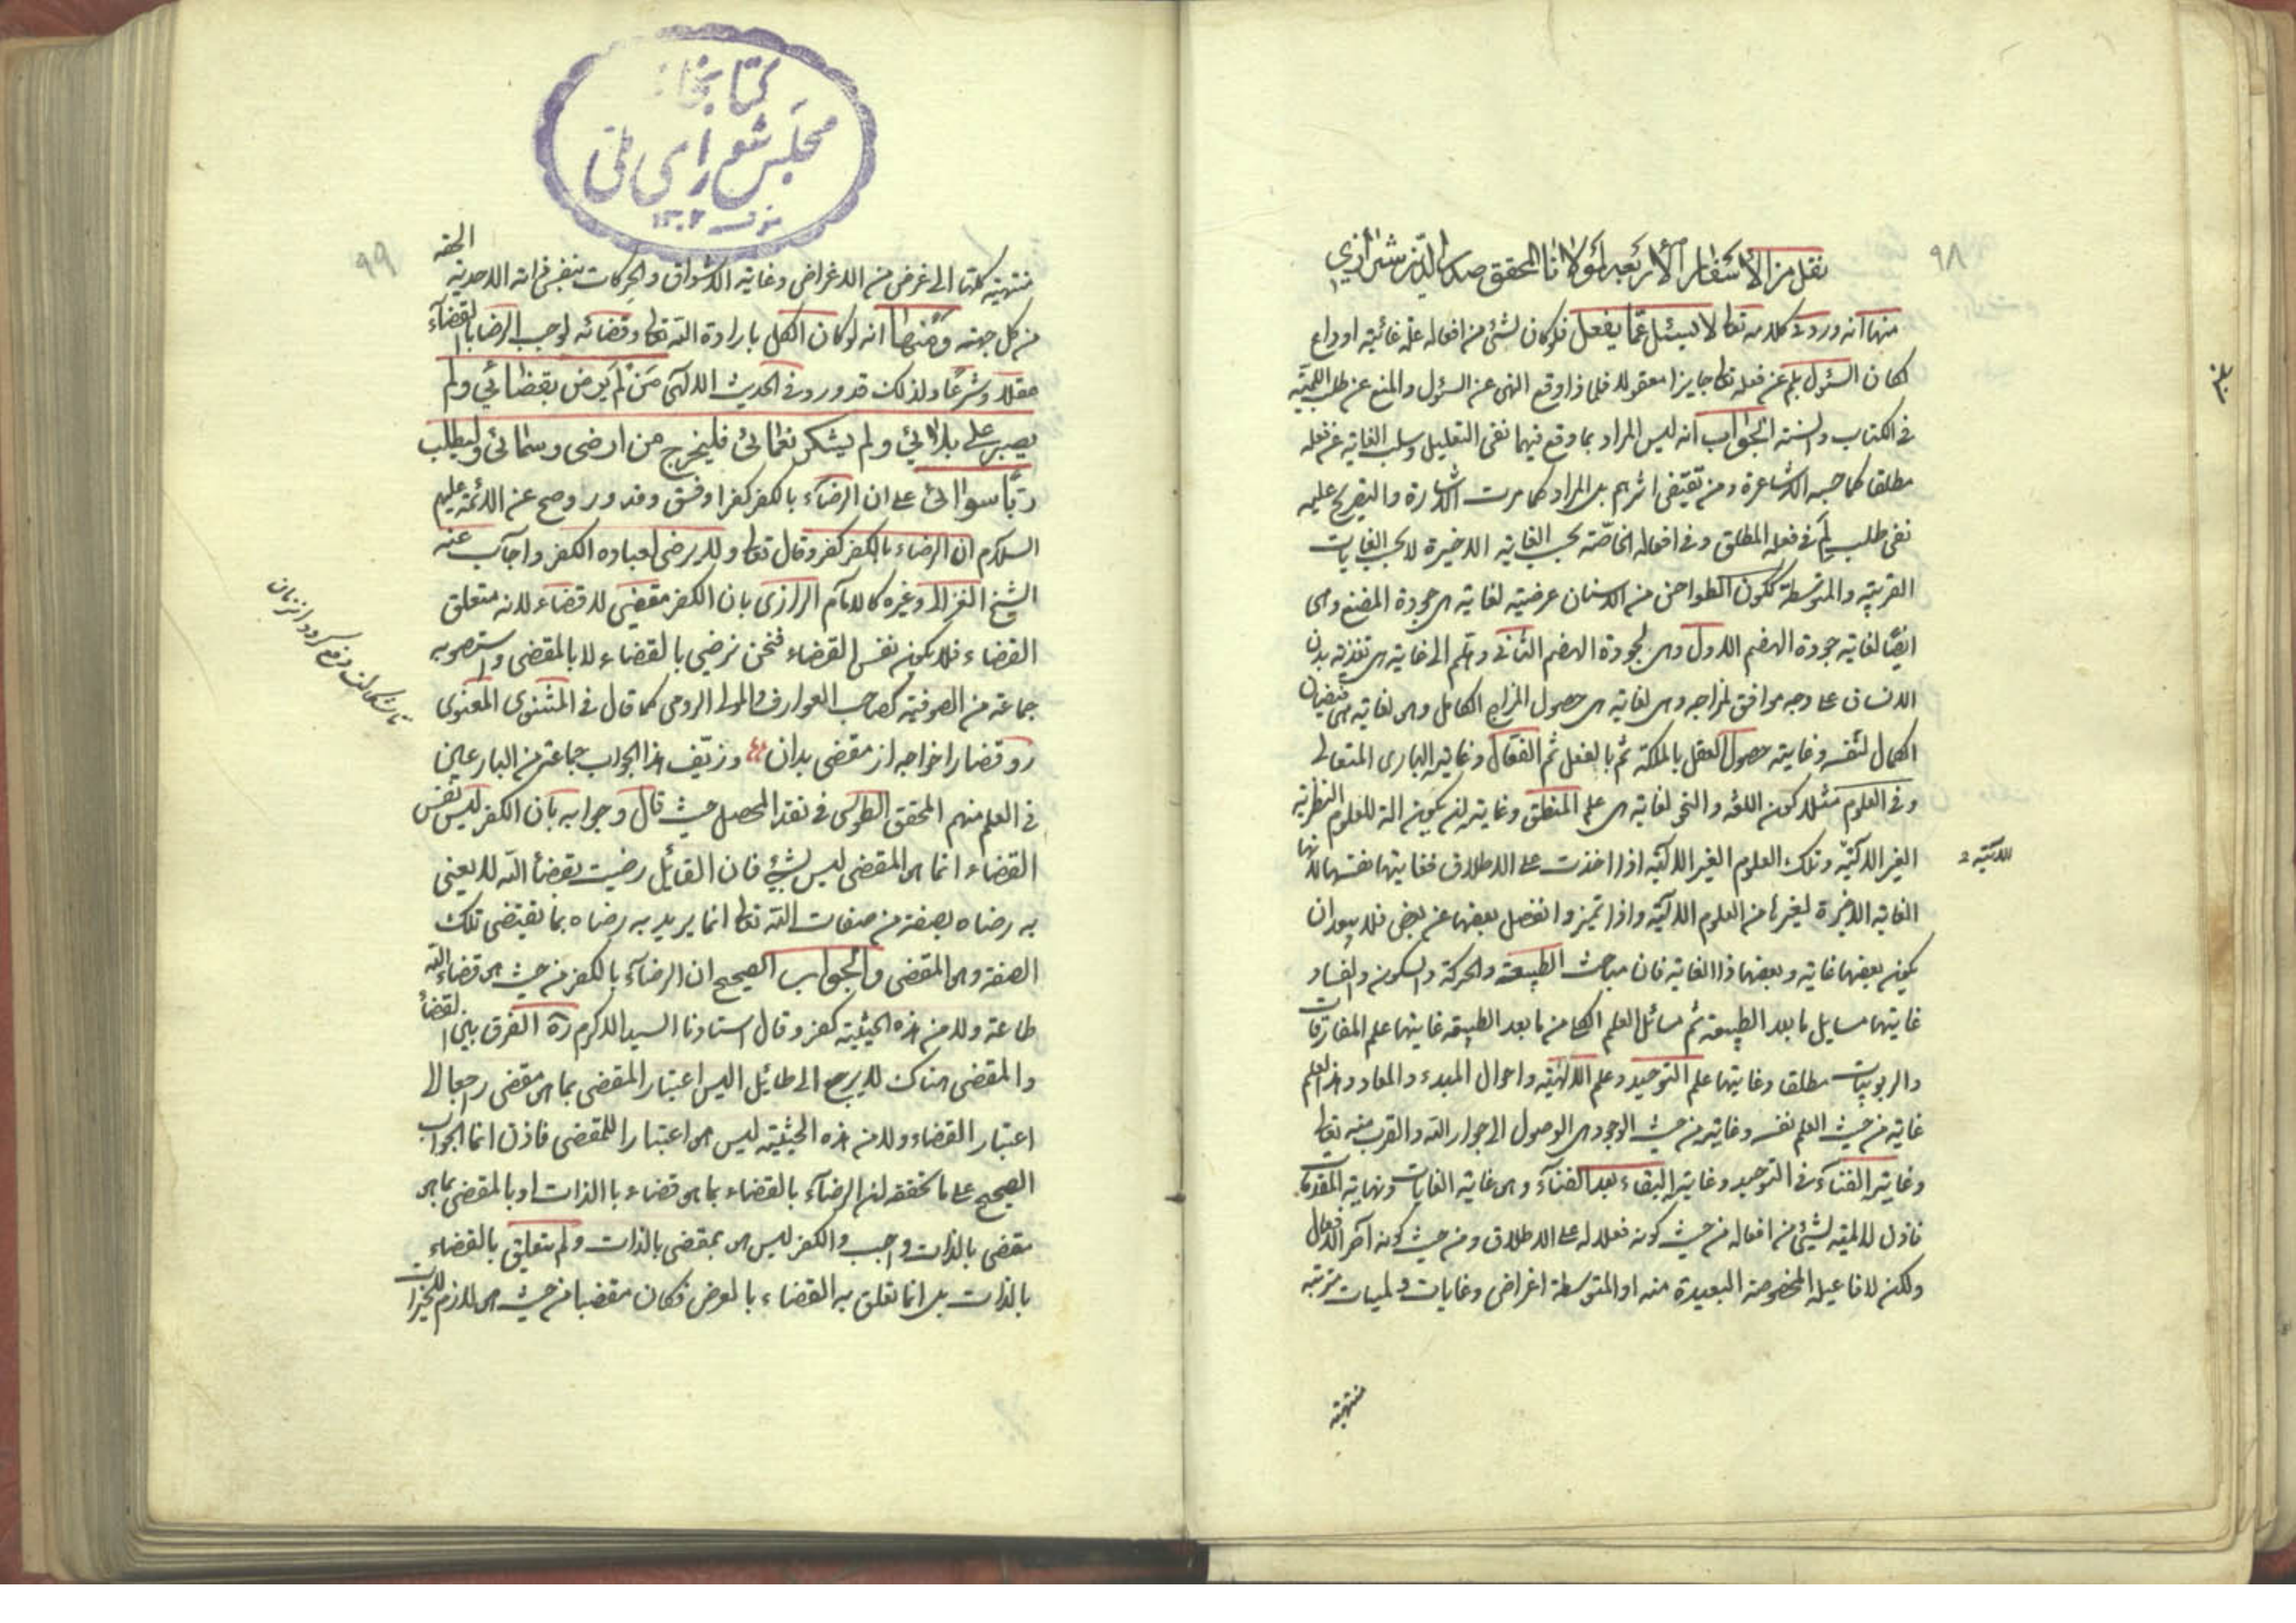 ٩٨
نقل من الأسفار الأربعة لمولانا المحقق صدر الدين شيرازي
منها انه ورد فى كلامه تعالى لا يسئل عما يفعل فلو كان لشئ من افعاله علة غائية او داع
لكان السئول بلم عن فعله تعالى جايزا معقولا فلماذا وقع النهى عن السئول والمنع عن طلب اللمية
فى الكتاب والسنة الجواب انه ليس المراد بما وقع فيهما نفى التعليل وسلب الغاية عن فعله
مطلقا كما حسبه الاشاعرة ومن تقيفى اثرهم بل المراد كما مرت الاشارة والتصريح عليه
نفى طلب لم فى فعله المطلق وفى افعاله الخاصة بحسب الغاية الاخيرة لا بحسب الغايات
القريبة والمتوسطة ككون الطواحن من الاسنان عريضة لغاية هى جودة المضغ وهى
ايضا لغاية جودة الهضم الاول وهى لجودة الهضم الثانى وهلم الى غاية هى تغذية بدن
الانسان على وجه موافق لمزاجه وهى لغاية هى حصول المزاج الكامل وهى لغاية هى فيضان
الكمال لنفسه وغايته حصول العقل بالملكة ثم بالفعل ثم الفعال وغايته البارى المتعالى
وفى العلوم مثلا كون اللغة والنحو لغاية هى علم المنطق وغايته ان يكون الة للعلوم النظرية
الغير الالية وتلك العلوم الغير الالية اذا اخذت على الاطلاق فغايتها نفسها لانها
الالية
الغاية الاخيرة لغيرها من العلوم الالية واذا تميز وانفصل بعضها عن بعض فلا يبعد ان
يكون بعضها غاية وبعضها ذا الغاية فان مباحث الطبيعة والحركة والسكون والفساد
غايتها مسايل ما بعد الطبيعة ثم مسائل العلم الكلى من ما بعد الطبيعة غايتها علم المفارقات
والربوبيات مطلقا وغايتها علم التوحيد وعلم الالهية واحوال المبدء والمعاد وهذا العلم
غاية من حيث العلم نفسه وغايته من حيث الوجود هى الوصول الى جوار الله والقرب منه تعالى
وغايته الفناء فى التوحيد وغايته البقاء بعد الفناء وهى غاية الغايات ونهاية المقدمات
فاذن لا لمية لشئ من افعاله من حيث كونه فعلا له على الاطلاق ومن حيث كونه آخر الافعال
ولكن لافاعيله المخصوصة البعيدة منه او المتوسطة اغراض وغايات ولميات مترتبة
منتهية
كتابخانه
مجلس شوراى ملى
١٣٠٢
٩٩
منتهية كلها الى غرض من الاغراض وغاية الاشواق والحركات بنفس ذاته الاحدية الحقة
من كل جهة ومنها انه لو كان الكل بارادة الله تعالى وقضائه لوجب الرضا بالقضاء
عقلا وشرعا ولذلك قد ورد فى الحديث الالهى من لم يرض بقضائي ولم
يصبر على بلائي ولم يشكر نعمائى فليخرج من ارضى وسمائى وليطلب
ربا سوائى على ان الرضاء بالكفر كفر او فسق وقد ورد وصح عن الائمة عليهم
السلام ان الرضاء بالكفر كفر وقال تعالى ولا يرضى لعباده الكفر واجاب عنه
الشيخ الغزالى وغيره كالامام الرازى بان الكفر مقضى لا قضاء لانه متعلق
القضاء فلا يكون نفس القضاء فنحن نرضى بالقضاء لا بالمقضى واستصوبه
جماعة من الصوفية كصاحب العوارف والمولى الرومى كما قال فى المثنوى المعنوى
رو قضا را خواجه از مقضى بدان وزيف هذا الجواب جماعة من البارعين
تا شكالت دفع گردد از زمان
فى العلم منهم المحقق الطوسى فى نقد المحصل حيث قال وجوابه بان الكفر ليس نفس
القضاء انما هى المقضى ليس بشئ فان القائل رضيت بقضاء الله لا يعنى
به رضاه بصفة من صفات الله تعالى انما يريد به رضاه بما تقتضى تلك
الصفة وهى المقضى والجواب الصحيح ان الرضاء بالكفر من حيث هى قضاء الله
طاعة ولا من هذه الحيثية كفر وقال استادنا السيد الاكرم ره الفرق بين القضاء
والمقضى هناك لا يرجع الى طائل اليس اعتبار المقضى بما هى مقضى رجعا الى
اعتبار القضاء ولا من هذه الحيثية ليس هى اعتبارا للمقضى فاذن انما الجواب
الصحيح على ما تحققه ان الرضاء بالقضاء بما هى قضاء بالذات او بالمقضى بما هى
مقضى بالذات واجب والكفر ليس هى بمقضى بالذات ولم يتعلق بالقضاء
بالذات بل انما تعلق به القضاء بالعرض فكان مقضيا من حيث هى لازم للخيرات